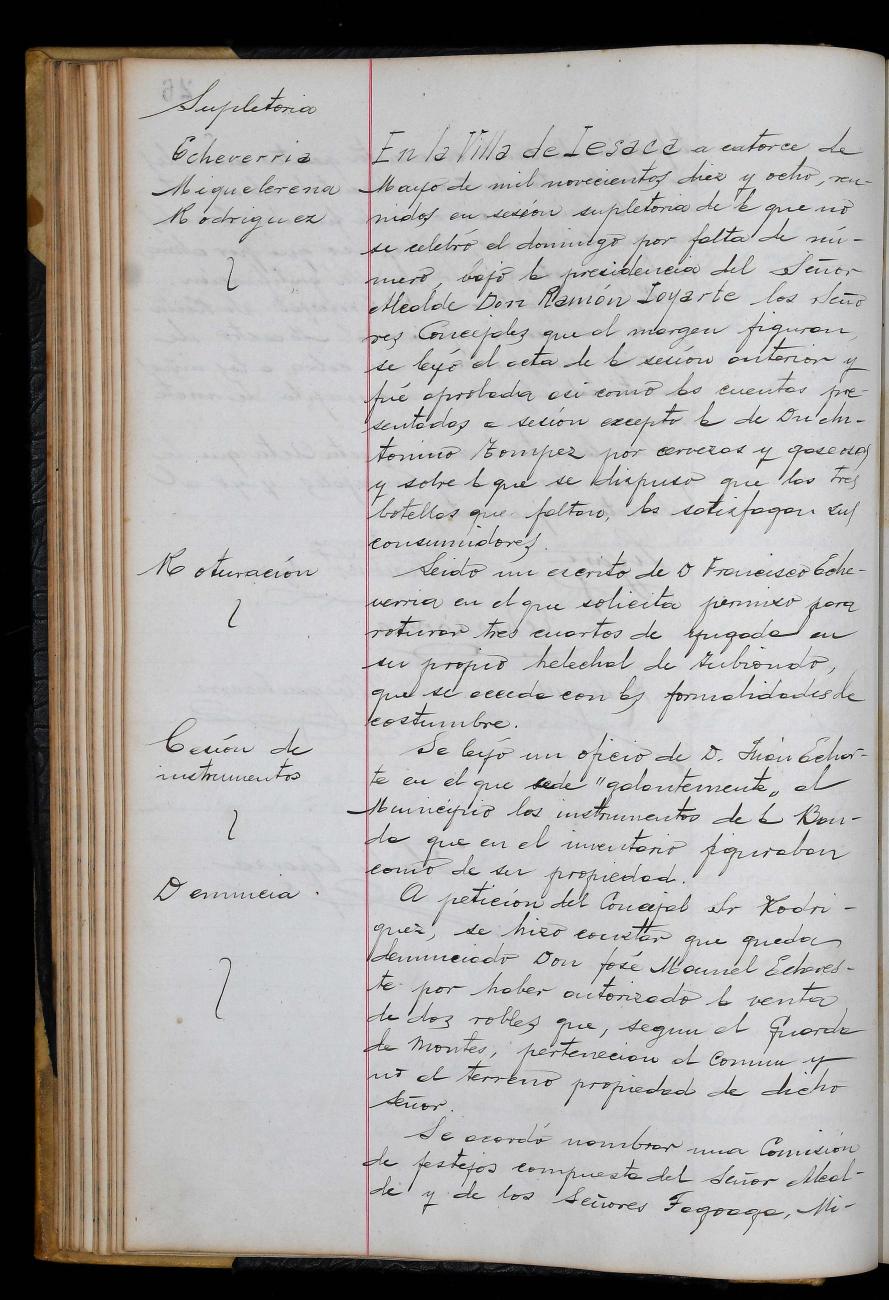 Supletoria
Echeverria
Miquelerena
Rodriguez
En la Villa de Lesaca a catorce de
Mayo de mil novecientos diez y ocho, reu-
nidos en sesión supletoria de la que no
se celebró el domingo por falta de nú-
mero, bajo la presidencia del Señor
Alcalde Don Ramón Loyarte los Seño
res Concejales que al margen figuran,
se leyó el acta de la sesión anterior y
fué aprobada asi como las cuentas pre-
sentadas a sesión excepto la de Dn An-
tonino por cervezas y gaseosas
y sobre la que se dispuso que las tres
botellas que faltan, las satisfagan sus
consumidores.
Roturación
Leido un escrito de D Francisco Eche-
verria en el que solicita permiso para
roturar tres cuartos de yugada en
su propio helechal de Zubiondo,
que se acceda con las formalidades de
costumbre.
Cesión de
instrumentos
Se leyó un oficio de D. Juan Echar-
te en el que cede "galantemente" al
Municipio los instrumentos de la Ban-
da que en el inventario figuraban
como de su propiedad.
Denuncia.
A petición del Concejal Sr Rodri-
guez, se hizo constar que queda
denunciado Don José Manuel Echares-
te por haber autorizado la venta
de dos robles que, segun el Guarda
de Montes, pertenecian al Comun y
no al terreno propiedad de dicho
señor.
Se acordó nombrar una Comisión
de festejos compuesta del Señor Alcal-
de y de los Señores Fagoaga, Mi-